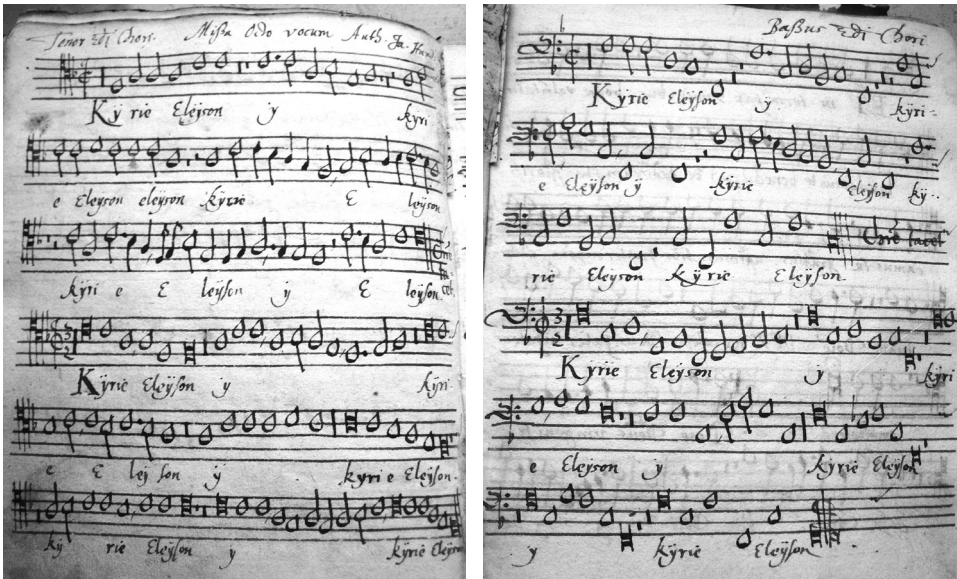 Tenor 2di Chori. Missa Octo vocum Auth. Ja.
Kÿrie Eleÿson ÿ kÿri
e Eleyson eleÿson kÿrie E leÿson
kÿri e E leÿson ÿ E leÿson.
3
2
Kÿrie Eleÿson ÿ kÿri-
e E leÿ son ÿ kÿri e Eleÿson.
kÿ rie Eleÿson ÿ kÿrie Eleÿson
Baßus 2di Chori.
Kÿrie Eleÿson ÿ kÿri-
e Eleÿson ÿ kÿrie Eleÿson kÿ-
rie Eleyson Kÿrie Eleÿson Chõr tacet
3
2
Kÿrie Eleÿson ÿ kÿri
e Eleyson ÿ kÿrie Eleÿson
ÿ kÿrie Eleÿson